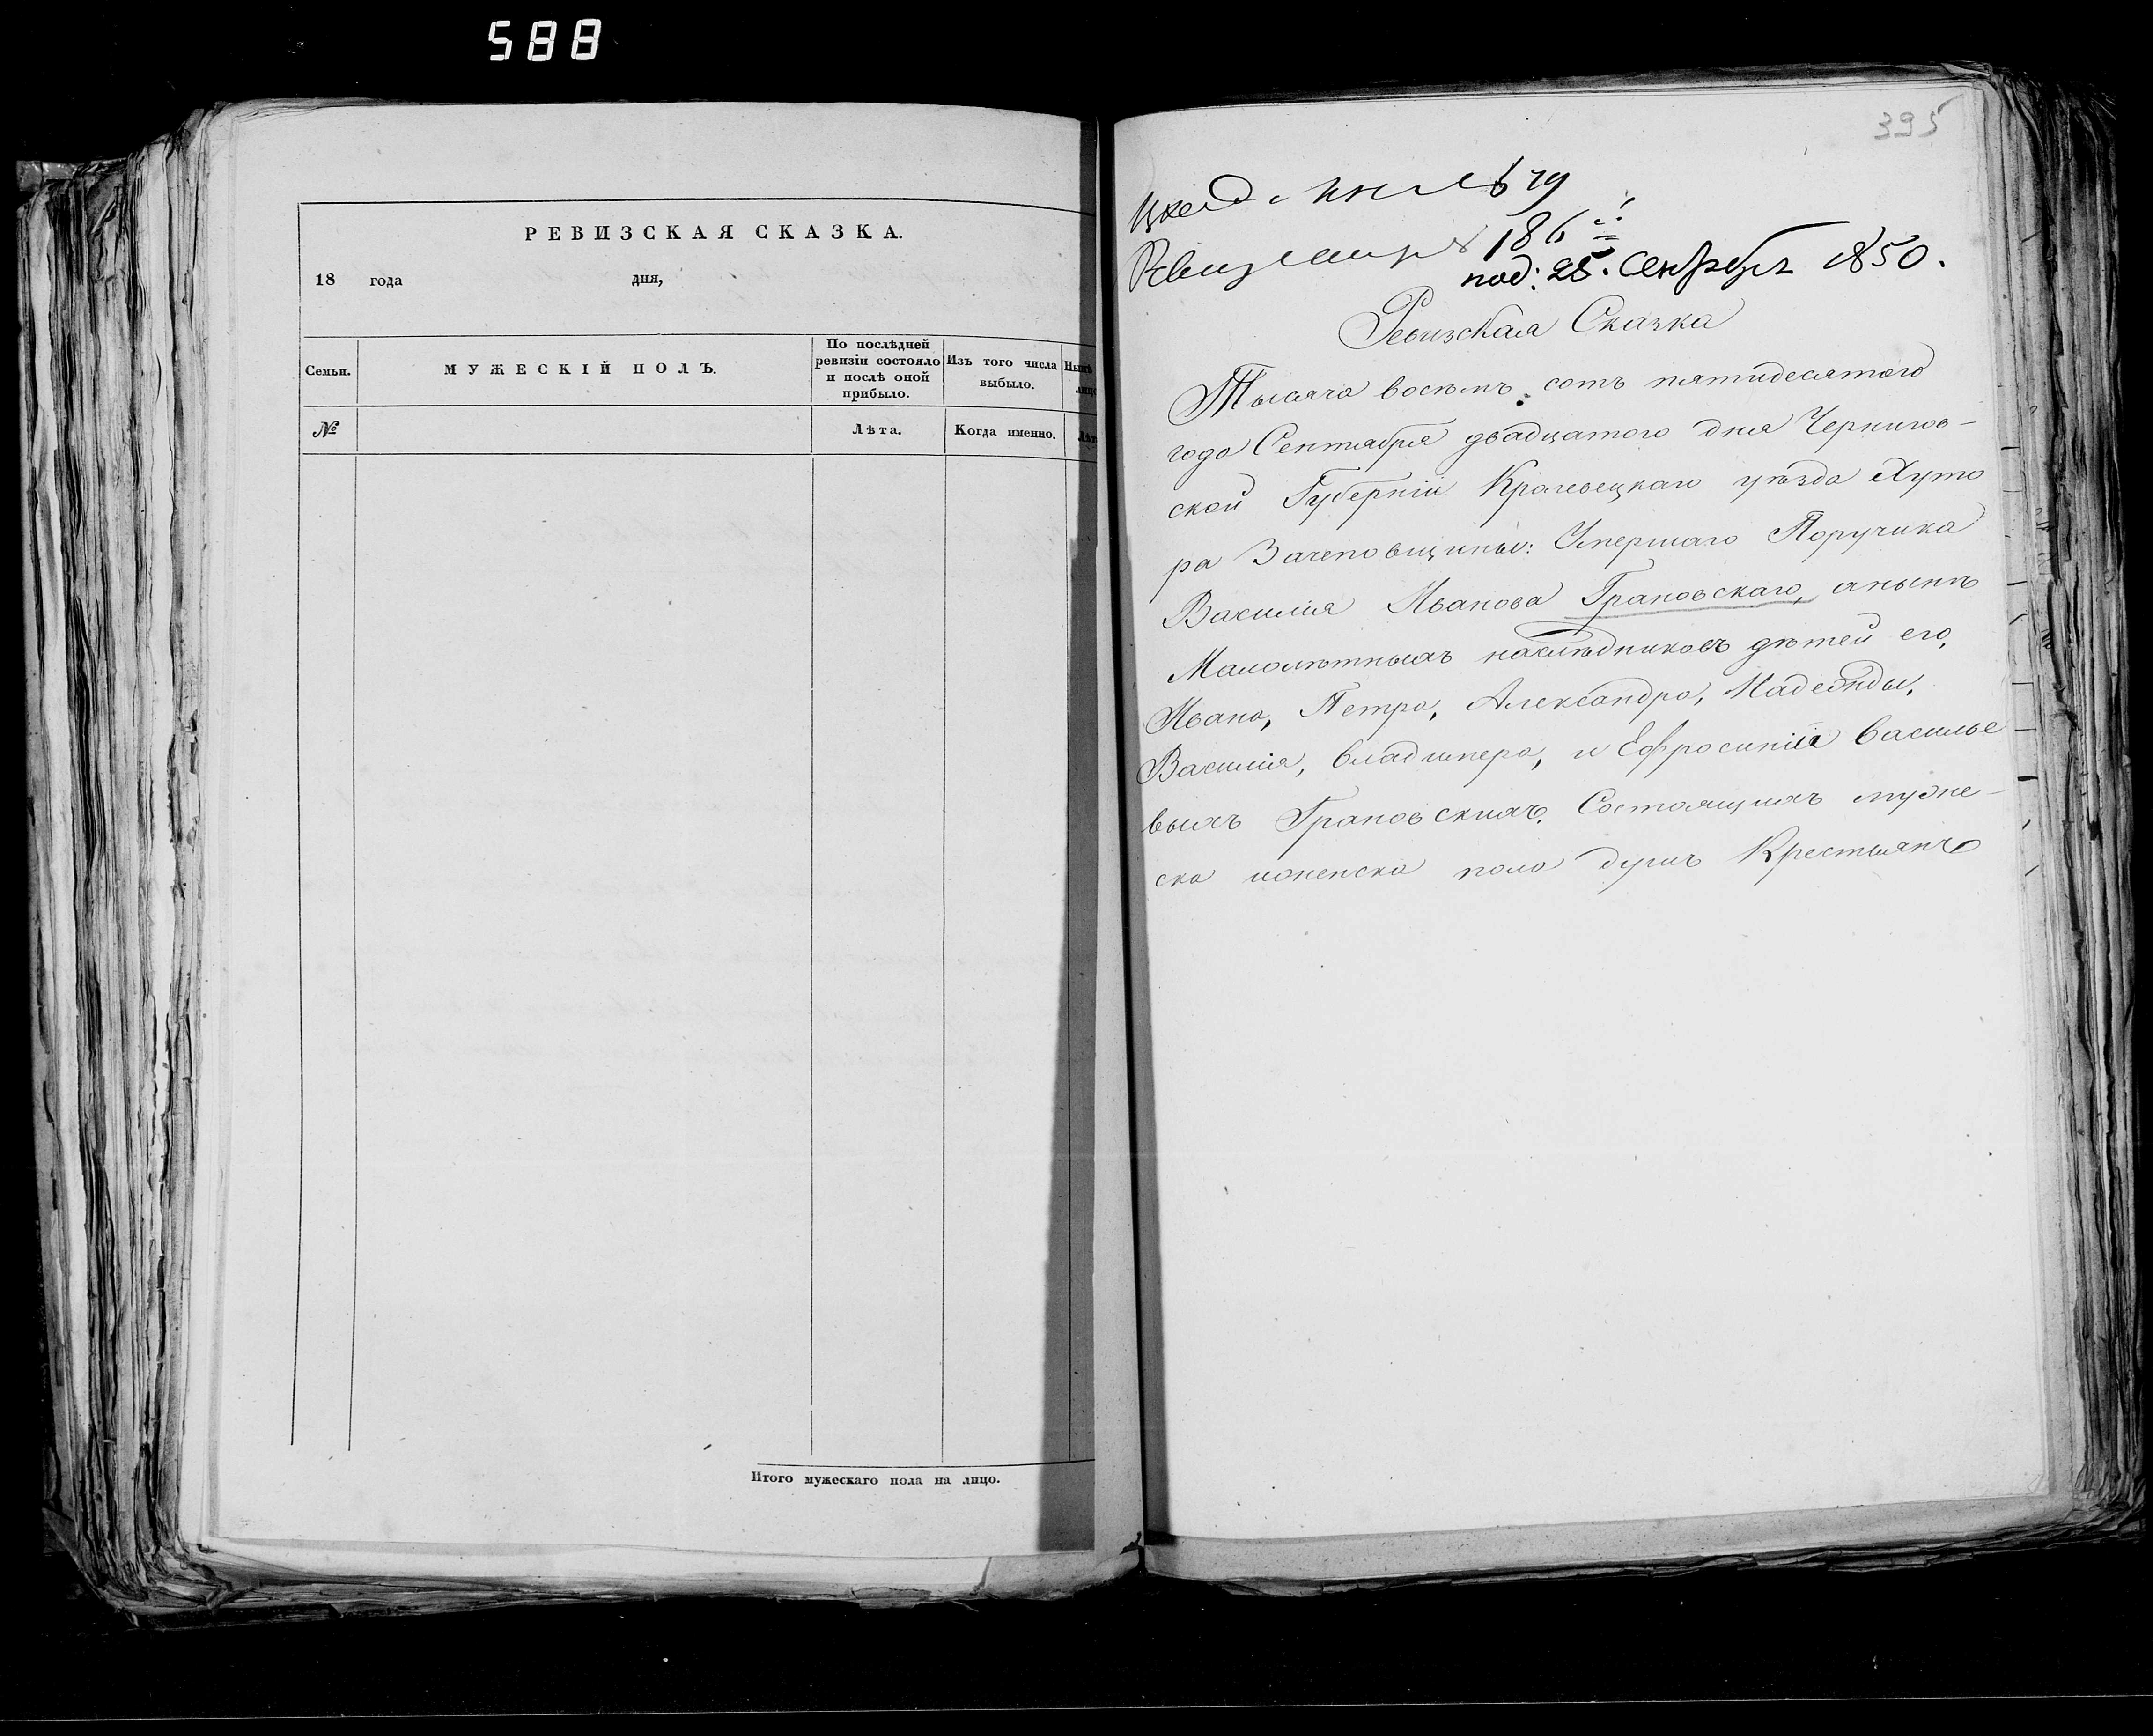 588
РЕВИЗСКАЯ СКАЗКА.
18 года дня,
Семьи.
МУЖЕСКІЙ ПОЛЪ.
По послѣдней
ревизіи состояло
и послѣ оной
прибыло.
Изъ того числа
выбыло.
№
Лѣта.
Когда именно.
Итого мужескаго пола на лицо.
395
№ 19
186
под: 25. Сентябр 1850.
Ревизская Сказка
Тысяча восемь сотъ пятидесятого
года Сентября двадцатого дня Чернигов-
ской Губерніи Кролевецкаго уѣзда Хуто
ра Зачеповщины: Умершаго Поручика
Василія Иванова Грановскаго, анынѣ
Малолѣтныхъ наслѣдниковъ дѣтей его,
Ивана, Петра, Александра, Надежды,
Василія, Владимера, и Ефросиніи Василье
выхъ Грановскихъ. Состоящихъ муже-
ска иженска пола душъ Крестьянъ